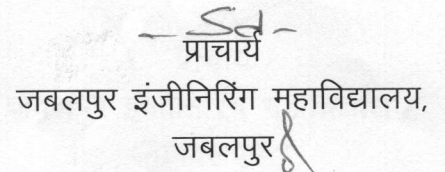 - Sd -
प्राचार्य
जबलपुर इंजीनिरिंग महाविद्यालय,
जबलपुर